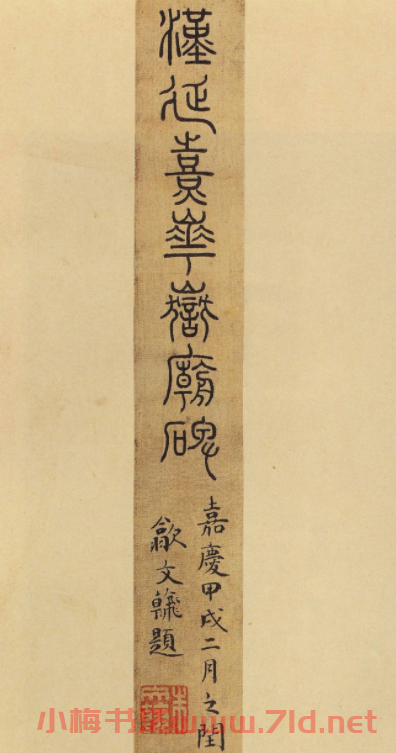 漢延熹華嶽廟碑
嘉慶甲戌二月之閏
歙文翰題
小梅书www.7ld.net